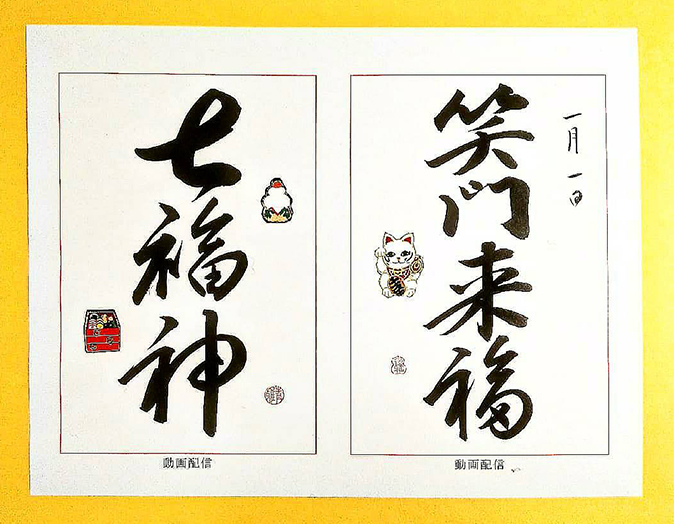 一月一日
笑門来福
動画配信
七福神
動画配信